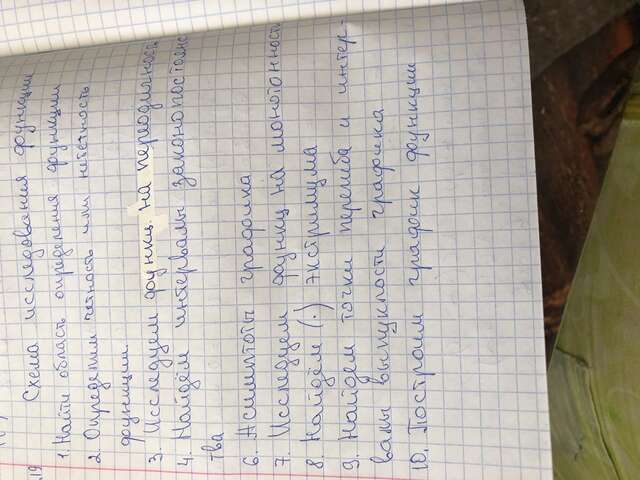 19 Схема исследования функции
1. Найти область определения функции
2. Определим четность или нечетность
функции.
3. Исследуем функц. на переодичност
4. Найдём интервалы законопостоянс
тва
6. Асимптоты графика
7. Исследуем функц на монотонность
8. Найдём (·) экстримума
9. Найдем точки перегиба и интер-
валы выпуклости графика
10. Построим график функции